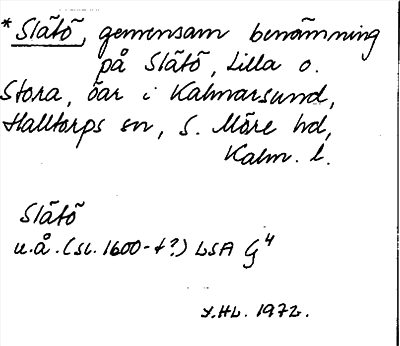 * Slätö, gemensam benämning
på Slätö, Lilla o.
Stora, öar i Kalmarsund,
Halltorps sn, S. Möre hd,
Kalm. l.
Slätö
u.å. (sl. 1600-t?) LSA G4
Y.HL. 1972.